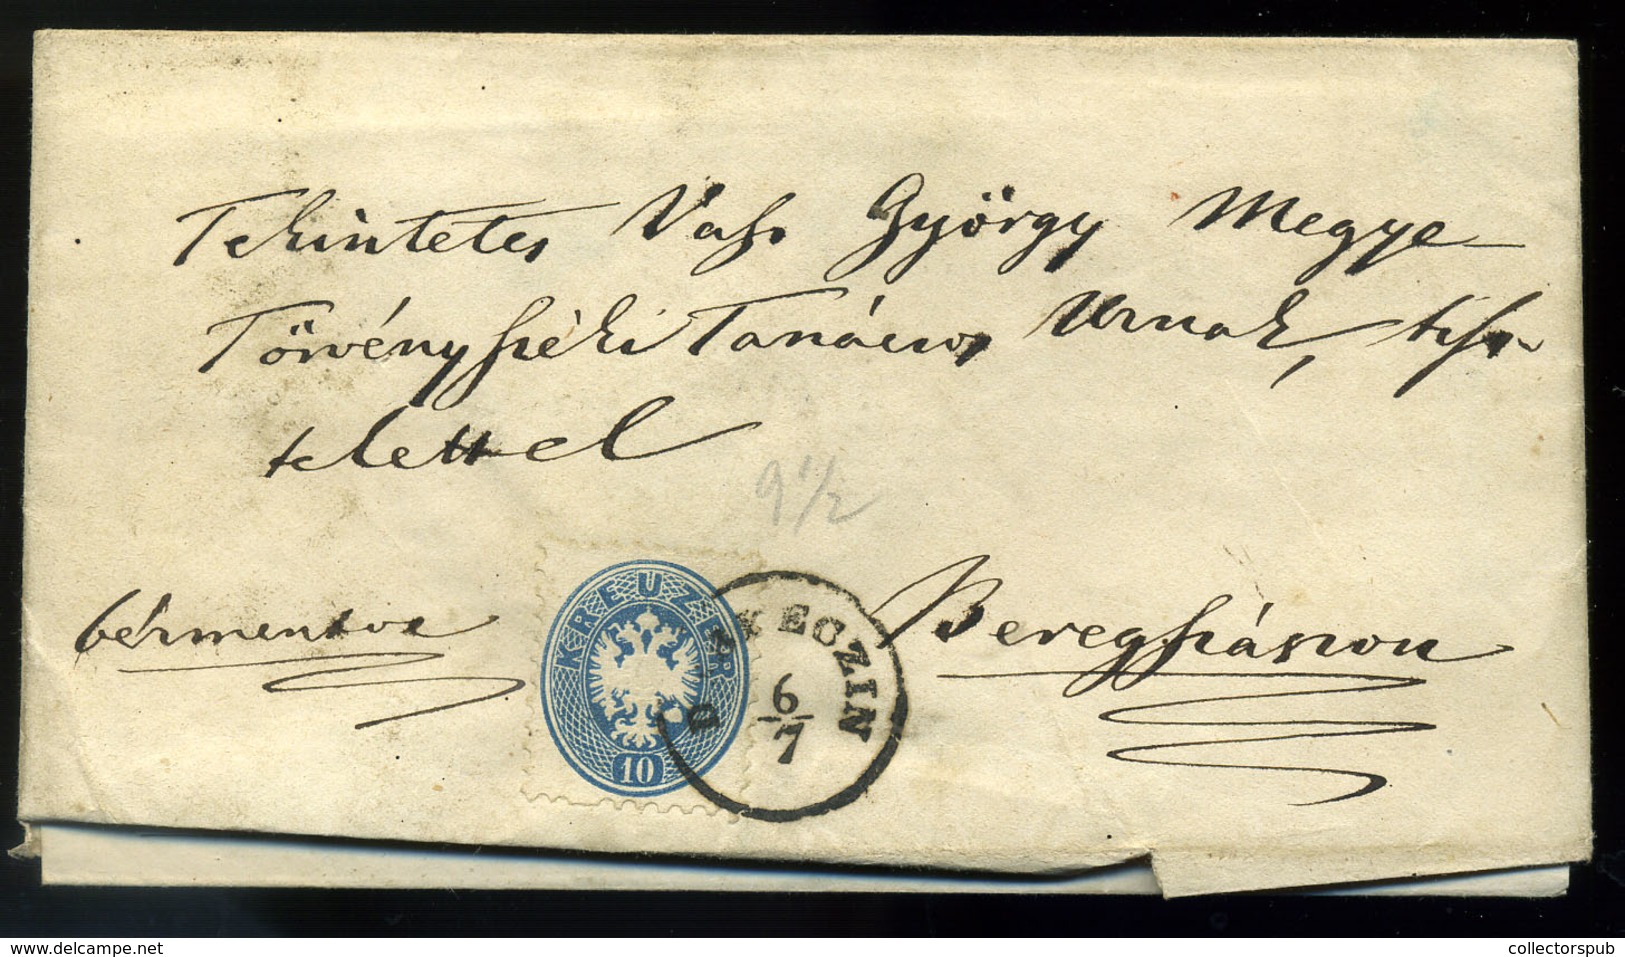 Tekintetes Vass György Megye
Törvényszéki Tanácsos Urnak, tisz-
telettel
9 1/2
bérmentve
Beregszászon
KREUZER
10
DEBRECZIN
6/7
www.delcampe.net
collectorspub